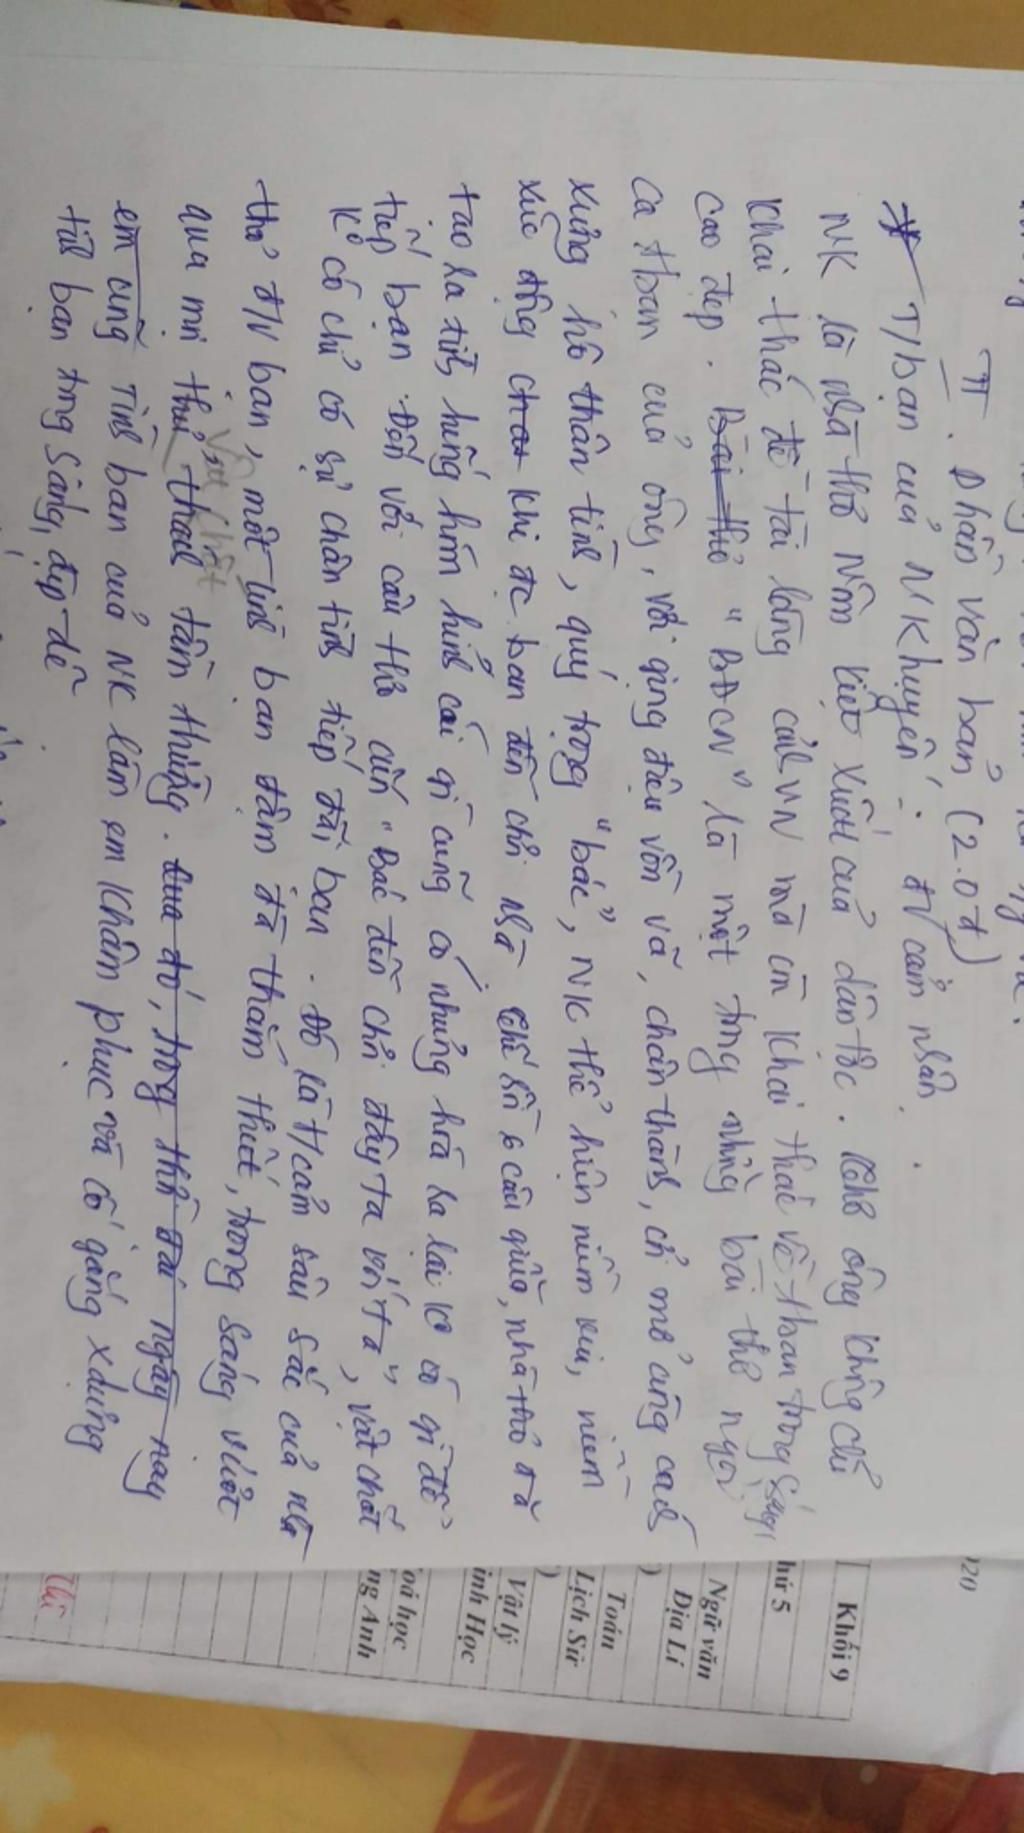 II. Phần văn bản (2.0đ)
* T/bạn của NKhuyến: đv cảm nhận.
NK là nhà thơ Nôm kiệt xuất của dân tộc. Thơ ông không chỉ
khai thác đề tài làng cảnh VN mà còn khai thác về t/bạn trong sáng,
cao đẹp. Bài thơ "BĐCN" là một trong những bài thơ ngợi
ca t/bạn của ông, với giọng điệu vồn vã, chân thành, cởi mở cùng cách
xưng hô thân tình, quý trọng "bác", NK thể hiện niềm vui, niềm
xúc động khi đc bạn đến chơi nhà. 6 câu giữa, nhà thơ đã
tạo ra tình huống hóm hỉnh cái gì cũng có nhưng hoá ra lại ko có gì để
tiếp bạn. Đến với câu thơ cuối "Bác đến chơi đây ta với ta", vật chất
K có chỉ có sự chân tình tiếp đãi bạn. Đó là t/cảm sâu sắc của nhà
thơ đ/v bạn, một tình bạn đậm đà thắm thiết, trong sáng vượt
qua mọi thứ vật chất tầm thường. Qua đó, trong thời đại ngày nay
em cũng Tình bạn của NK làm em khâm phục và cố gắng xdựng
tình bạn trong sáng, đẹp đẽ
020
Khối 9
hứ 5
Ngữ văn
Địa Lí
)
Toán
Lịch Sử
)
Vật lý
inh Học
oá học
ng Anh